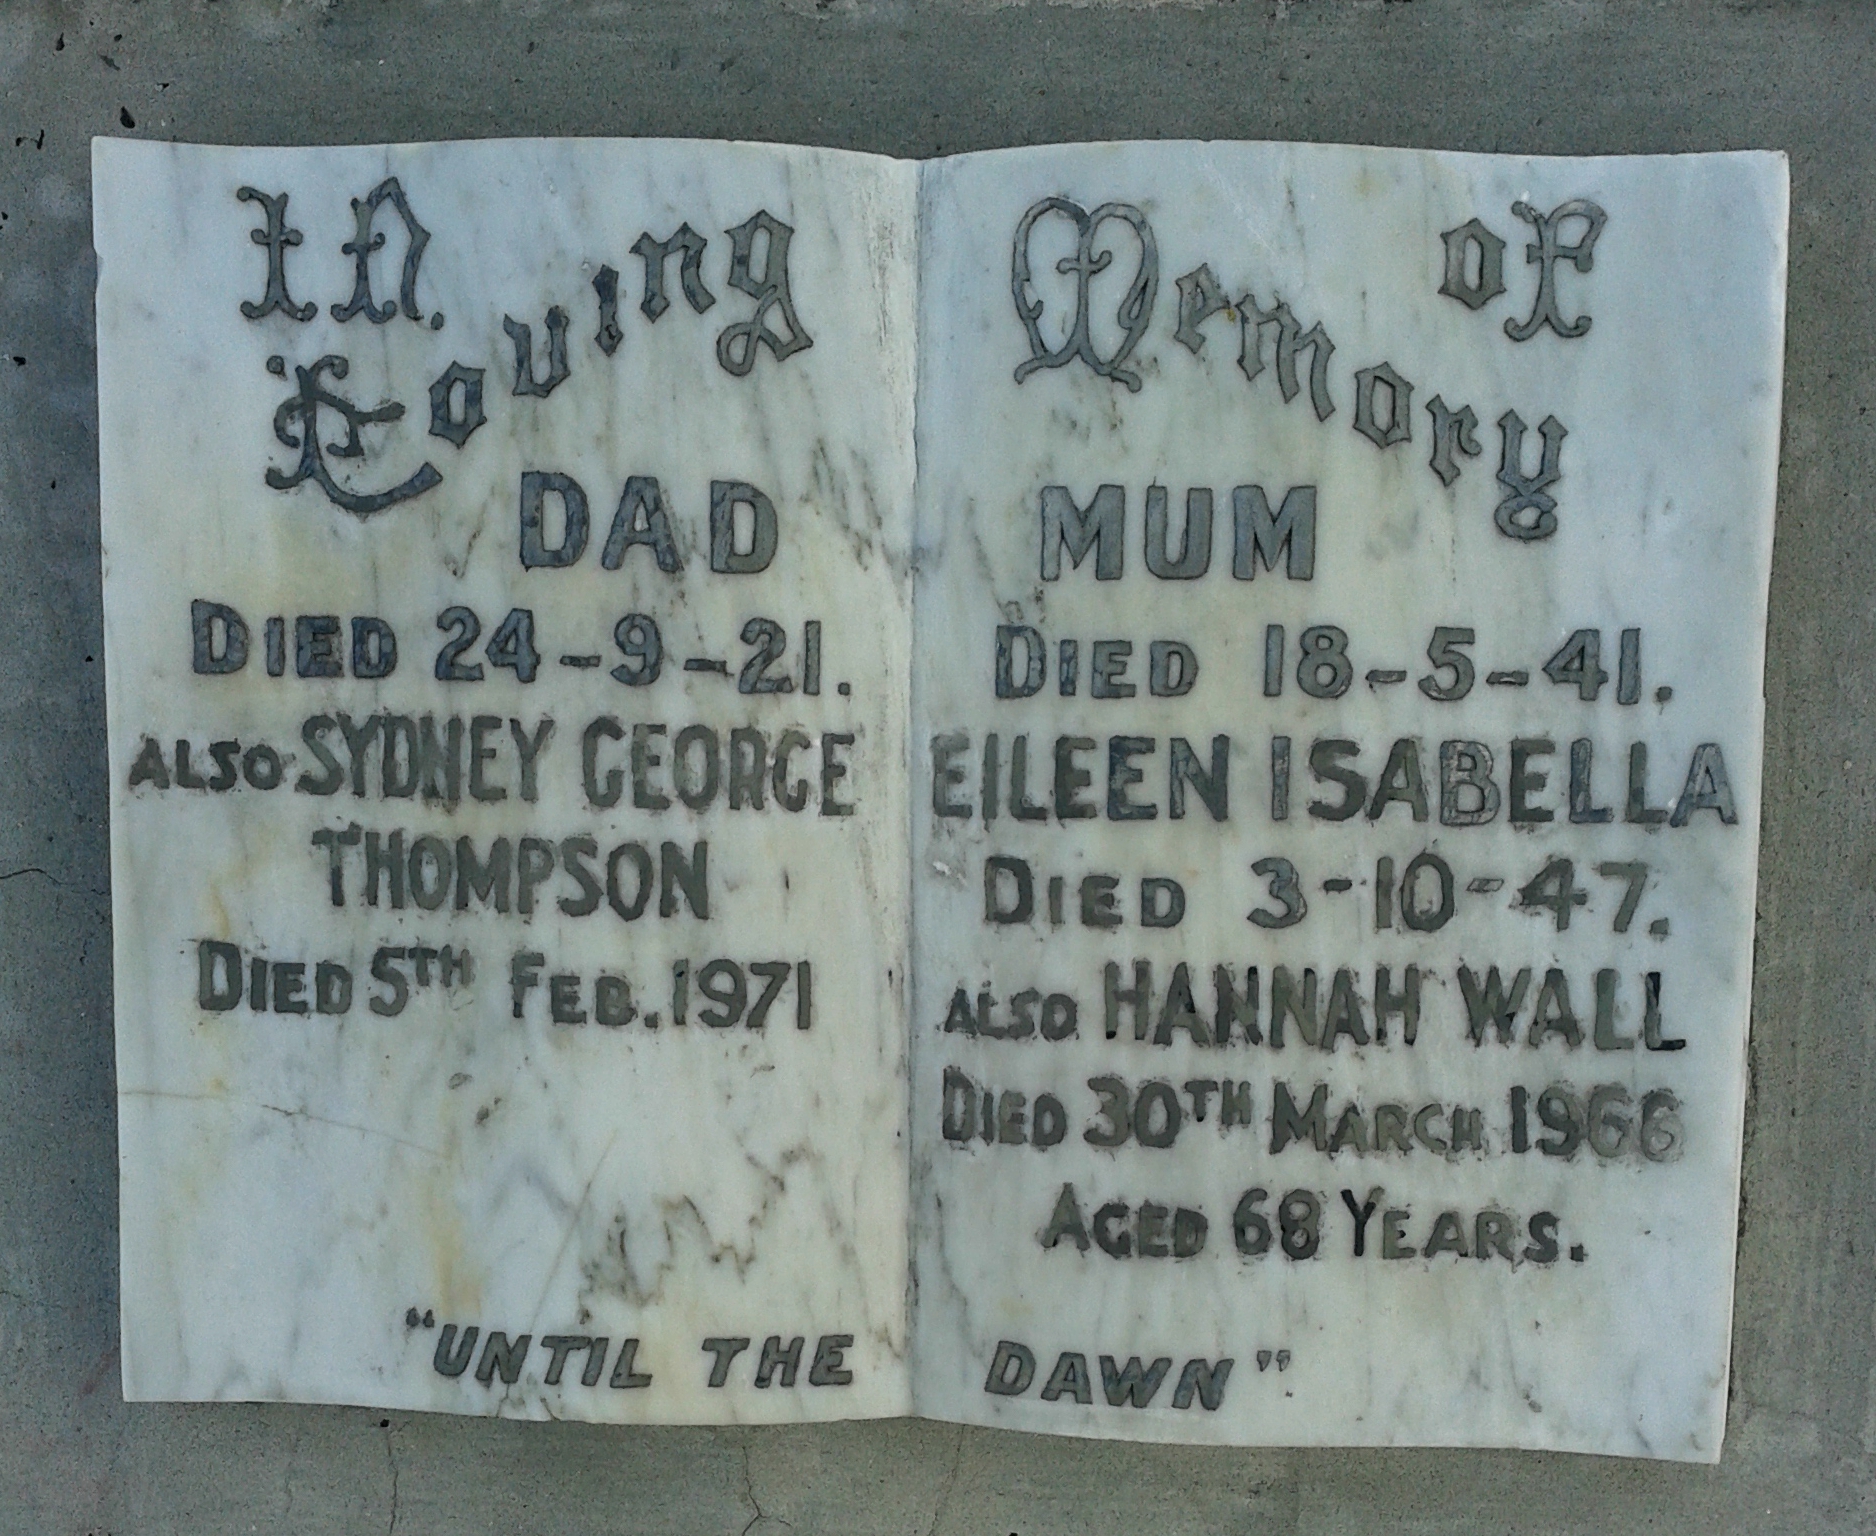 In Loving
DAD
DIED 24-9-21.
ALSO SYDNEY GEORGE
THOMPSON
DIED 5TH FEB. 1971
"UNTIL THE
Memory of
MUM
DIED 18-5-41.
EILEEN ISABELLA
DIED 3-10-47.
ALSO HANNAH WALL
DIED 30TH MARCH 1966
AGED 68 YEARS.
DAWN"